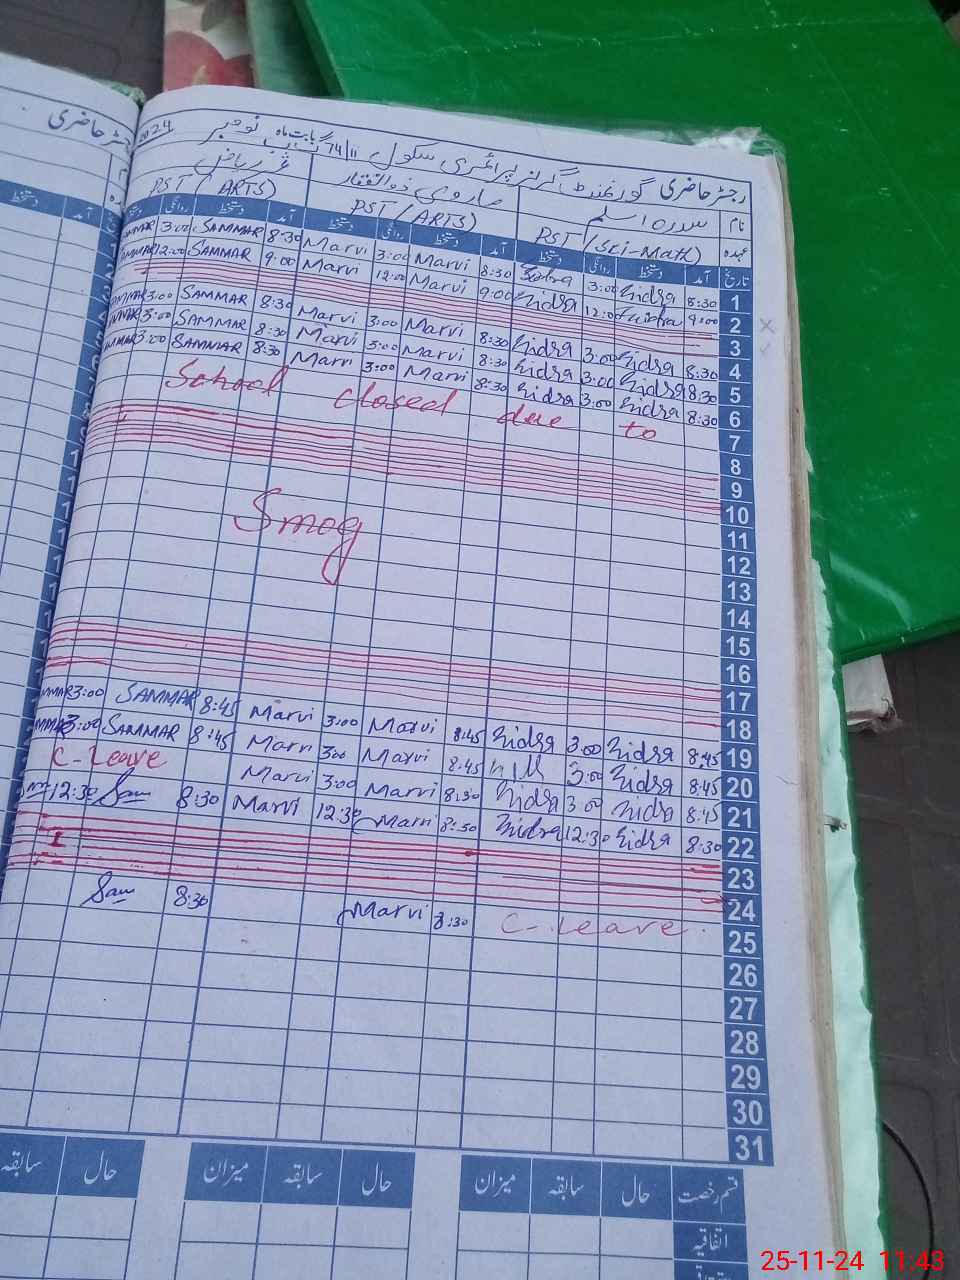 رجسٹر حاضری گورنمنٹ گرلز پرائمری سکول 74/11 بابت ماہ نومبر 2024
رجسٹر حاضری
نام سدرہ اسلم ماروی ذوالفقار ریاض
عہدہ PST (Sci-Math) PST (ARTS) PST (ARTS)
تاریخ آمد دستخط روانگی دستخط آمد دستخط روانگی دستخط آمد دستخط روانگی دستخط
3:00 SAMMAR 8:30 Marvi 3:00 Marvi 8:30 Sidra 3:00 Sidra 8:30 1
12:00 SAMMAR 9:00 Marvi 12:00 Marvi 9:00 Sidra 12:00 Sidra 9:00 2
3
3:00 SAMMAR 8:30 Marvi 3:00 Marvi 8:30 Sidra 3:00 Sidra 8:30 4
3:00 SAMMAR 8:30 Marvi 3:00 Marvi 8:30 Sidra 3:00 Sidra 8:30 5
3:00 SAMMAR 8:30 Marvi 3:00 Marvi 8:30 Sidra 3:00 Sidra 8:30 6
School closed due to 7
8
9
10
Smog 11
12
13
14
15
16
17
18
3:00 SAMMAR 8:45 Marvi 3:00 Marvi 8:45 Sidra 3:00 Sidra 8:45 19
3:00 SAMMAR 8:45 Marvi 3:00 Marvi 8:45 3:00 Sidra 8:45 20
C-Leave Marvi 3:00 Marvi 8:30 Sidra 3:00 Sidra 8:45 21
12:30 Sam 8:30 Marvi 12:30 Marvi 8:30 Sidra 12:30 Sidra 8:30 22
23
24
Sam 8:30 Marvi 8:30 C-Leave 25
26
27
28
29
30
31
قسم رخصت حال سابقہ میزان حال سابقہ میزان حال سابقہ
اتفاقیہ
25-11-24 11:43